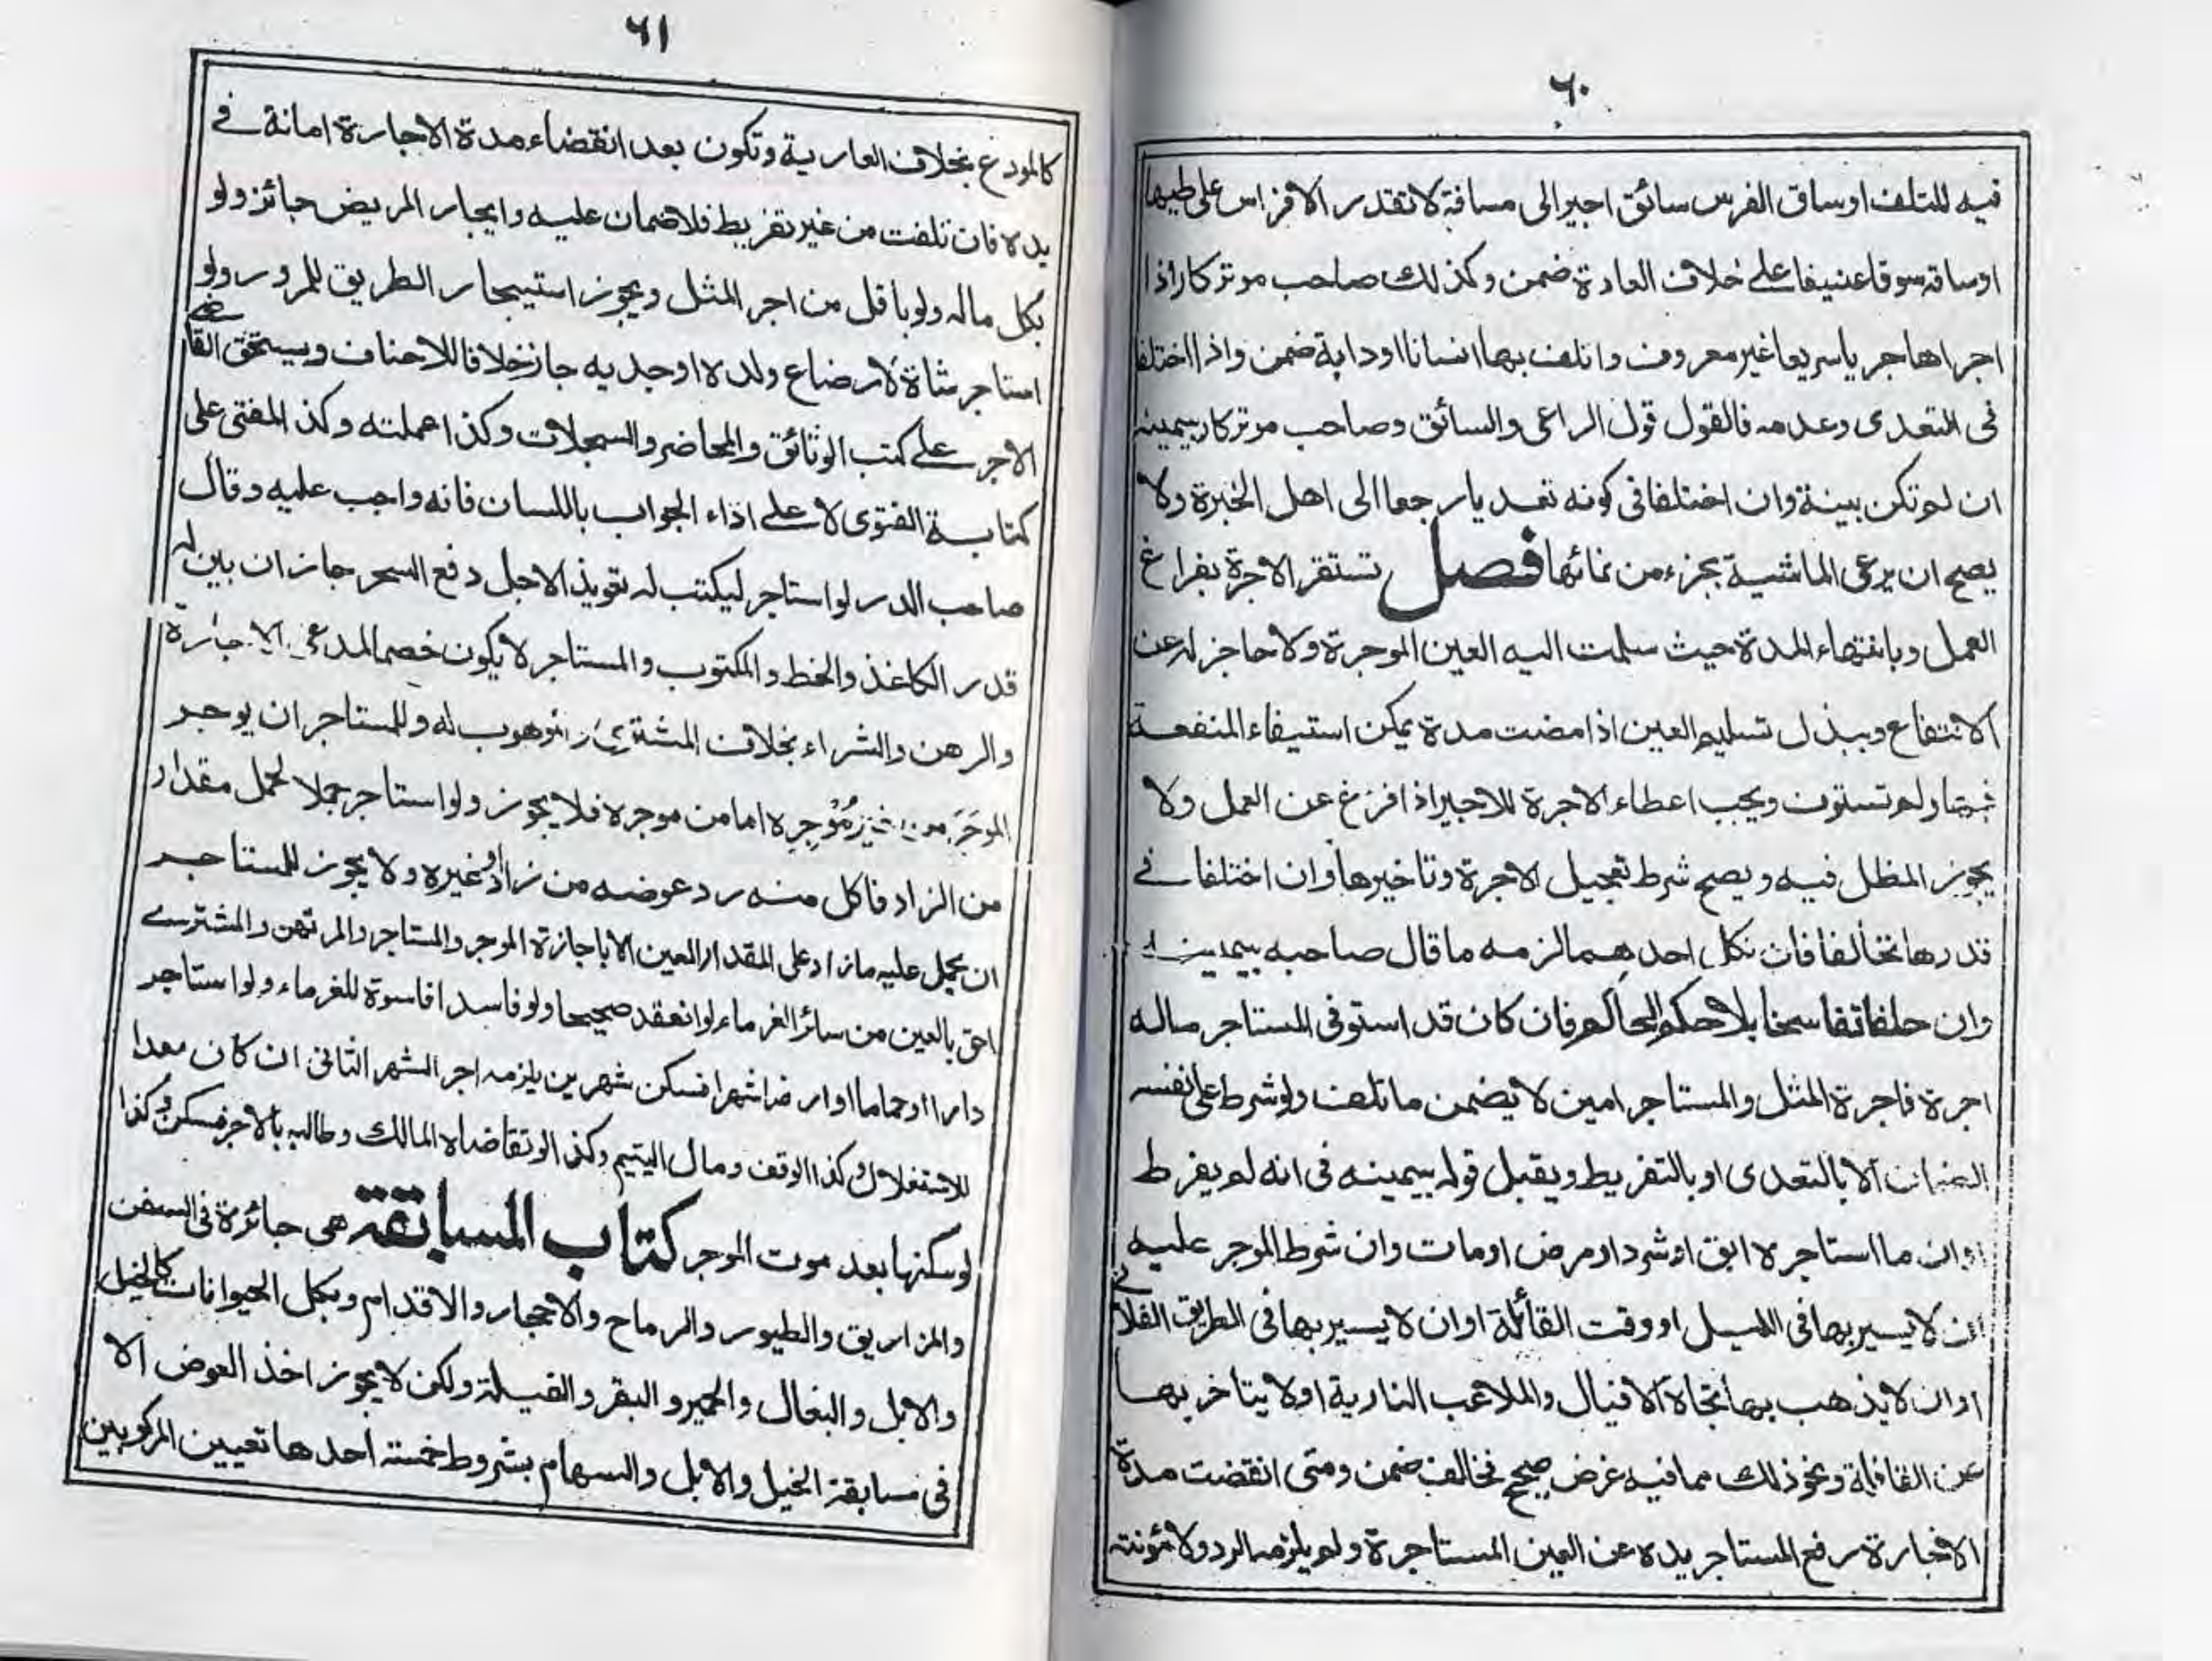 ٦٠
فيه للتلف اوساق الفرس سائق اجير الى مسافة لا تقدر الافراس على طيها
اوساقه سوقا عنيفا على خلاف العادة ضمن وكذلك صاحب موتركار اذا
اجراها جريا سريعا غير معروف واتلف بها انسانا اودابة ضمن واذا اختلفا
فى التعدى وعدمه فالقول قول الراعى والسائق وصاحب موتركار بيمينه
ان لم تكن بينة وان اختلفا فى كونه تعديا رجعا الى اهل الخبرة ولا
يصح ان يرعى الماشية بجزء من نمائها فصل تستقر الاجرة بفراغ
العمل وبانتهاء المدة حيث سلمت اليه العين الموجرة ولا حاجز له عن
الانتفاع وببذل تسليم العين اذا مضت مدة يمكن استيفاء المنفعة
فيها ولم تستوف ويجب اعطاء الاجرة للاجير اذا فرغ عن العمل ولا
يجوز المطل فيه ويصح شرط تعجيل الاجرة وتاخيرها وان اختلفا فى
قدرها تخالفا فان نكل احدهما لزمه ما قال صاحبه بيمينه
وان حلفا تفاسخا بلا حكم الحاكم فان كان قد استوفى المستاجر ماله
اجرة فاجرة المثل والمستاجر امين لا يضمن ما تلف ولو شرط على نفسه
الضمان الا بالتعدى او بالتفريط ويقبل قوله بيمينه فى انه لم يفرط
اوان ما استاجره ابق او شرد او مرض اومات وان شرط الموجر عليه
ان لا يسير بها فى الليل او وقت القائلة اوان لا يسير بها فى الطريق الفلانى
اوان لا يذهب بها تجاه الافيال والملاعب النارية اولا يتاخر بها
عن القافلة ونحو ذلك مما فيه غرض صحيح فخالف ضمن ومتى انقضت مدة
الاجارة رفع المستاجر يده عن العين المستاجرة ولم يلزمه الرد ولا مؤنته
٦١
كالمودع بخلاف العارية وتكون بعد انقضاء مدة الاجارة امانة فى
يده فان تلفت من غير تفريط فلا ضمان عليه وايجار المريض جائز ولو
بكل ماله ولو باقل من اجر المثل ويجوز استيجار الطريق للمرور ولو
استاجر شاة لارضاع ولده او جديه جاز خلافا للاحناف ويستحق القاضى
الاجر على كتب الوثائق والمحاضر والسجلات وكذا عملته وكذ المفتى على
كتابة الفتوى لا على اداء الجواب باللسان فانه واجب عليه وقال
صاحب الدر لو استاجر ليكتب له تعويذ الاجل دفع السحر جاز ان بين له
قدر الكاغذ والخط والمكتوب والمستاجر لا يكون خصما لمدعى الاجارة
والرهن والشراء بخلاف المشترى والموهوب له وللمستاجر ان يوجر
الموجَر من غير مُؤْجِره اما من موجره فلا يجوز ولو استاجر جملا لحمل مقدار
من الزاد فاكل منه رد عوضه من زاد او غيره ولا يجوز للمستاجر
ان يحمل عليه ما زاد على المقدار المعين الا باجازة الموجر والمستاجر والمرتهن والمشترى
احق بالعين من سائر الغرماء لو انعقد صحيحا ولو فاسدا فاسوة للغرماء ولو استاجر
دارا او حماما او ارضا شهرا فسكن شهرين يلزمه اجر الشهر الثانى ان كان معدا
للاستغلال وكذا الوقف ومال اليتيم وكذا لو تقاضاه المالك وطالبه بالاجر فسكن وكذا
لو سكنها بعد موت الموجر كتاب المسابقة هى جائزة فى السفن
والمزاريق والطيور والرماح والاحجار والاقدام وبكل الحيوانات كالخيل
والابل والبغال والحمير والبقر والفيلة ولكن لا يجوز اخذ العوض الا
فى مسابقة الخيل والابل والسهام بشروط خمسة احدها تعيين المركوبين